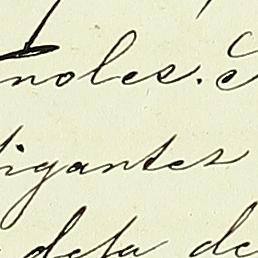 noles. E
igantes
deja de